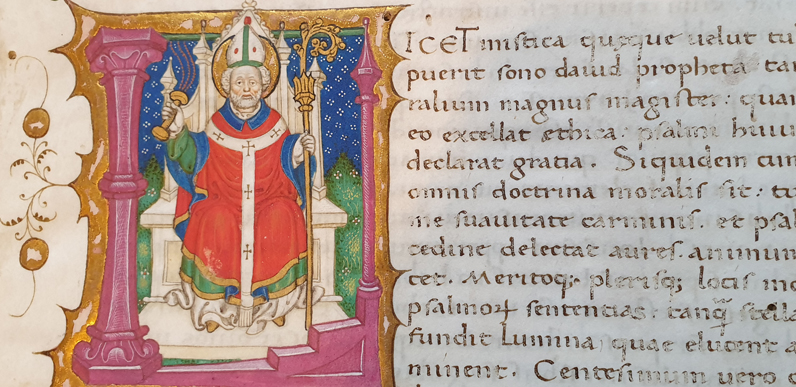 LICET mistica quoque uelut tu
puerit sono dauid propheta ta
ralium magnus magister. quan
eo excellat ethica. psalmi huiu
declarat gratia. Siquidem cum
omnis doctrina moralis sit. tu
me suauitate carminis. et psal
cedine delectat aures. animum
cet. Meritoq; plerisq; locis mo
psalmoꝝ sententias. tanq̃ stella
fundit lumina, quae eluceant a
mineant. Centesimum uero o